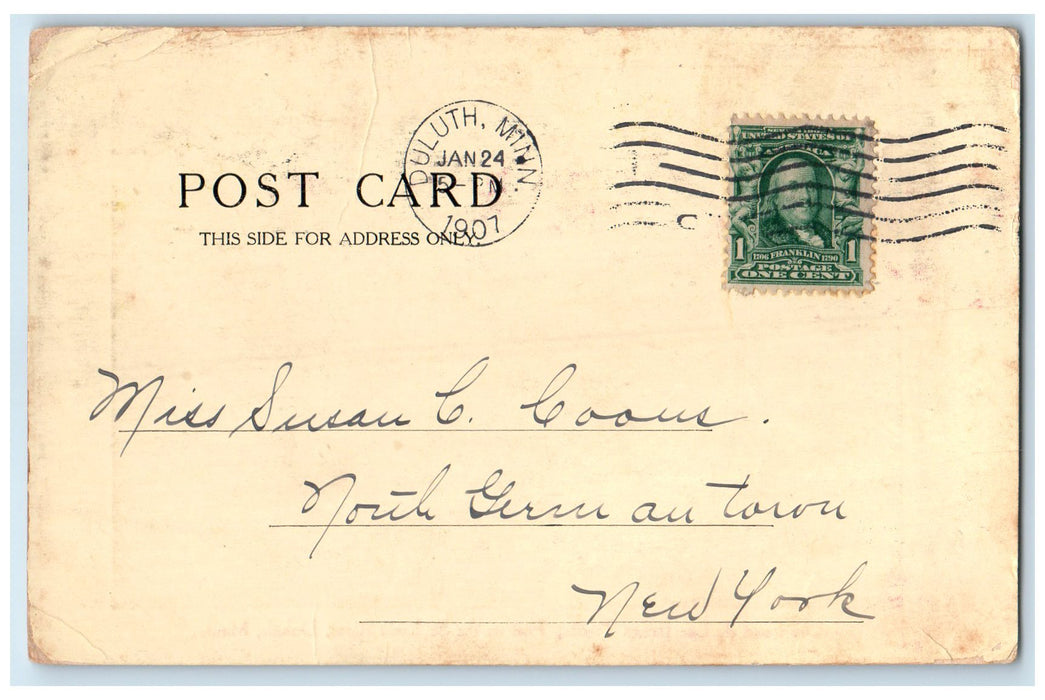 DULUTH, MINN.
JAN 24
PM
1907
POST CARD
THIS SIDE FOR ADDRESS ONLY.
UNITED STATES OF
AMERICA
1 1
1706 FRANKLIN 1790
POSTAGE
ONE CENT
Miss Susan C. Coons.
North Germantown
New York